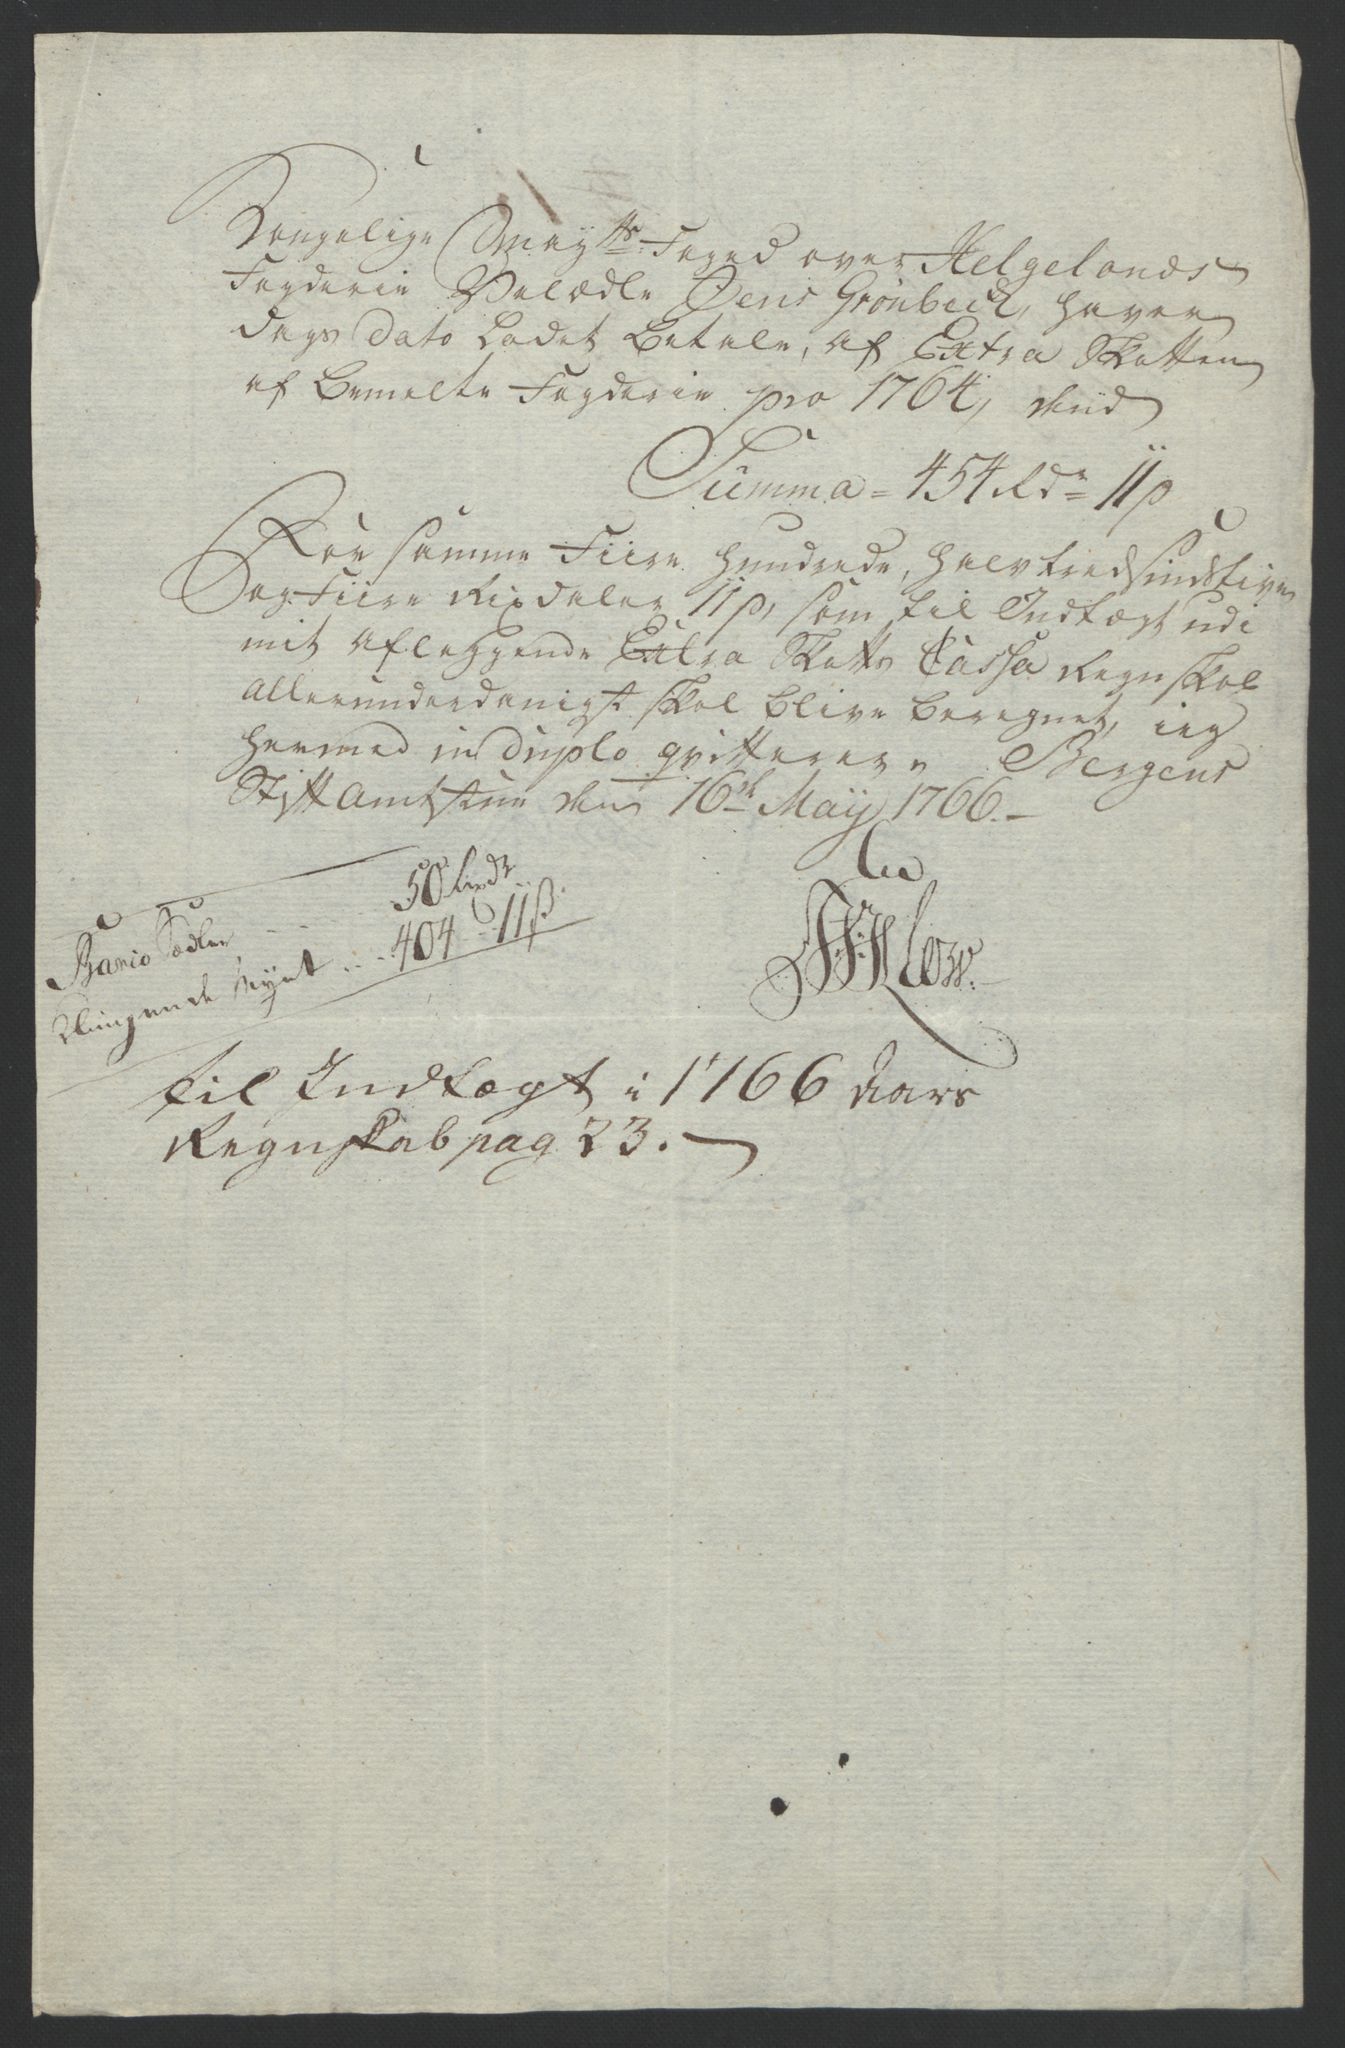 Kongelige Mayts Foged over Helgelands
Fogderie Velædle Jens Grönbeck, haver
dags dato Ladet betale, af Extra Skatten
af bemelte Fogderie pro 1764, den
Summa = 454 Rdr = 11 β
For samme Fiire hundrede, halvtredsindstive
og Fiire Rixdaler 11 β, som til Indtægt udi
mit aflæggende Extra Skatts Cassa Regnskab
allerunderdanigst skal blive beregnet, ieg
hermed in duplo qvitterer. Bergens
Stiftamtstue den 16de May 1766.
50 Rixdr
Banco Sedler
Klingende Mynt ... 404 " 11 β.
Til Indtægt i 1766 Aars
Regnskab pag 23.